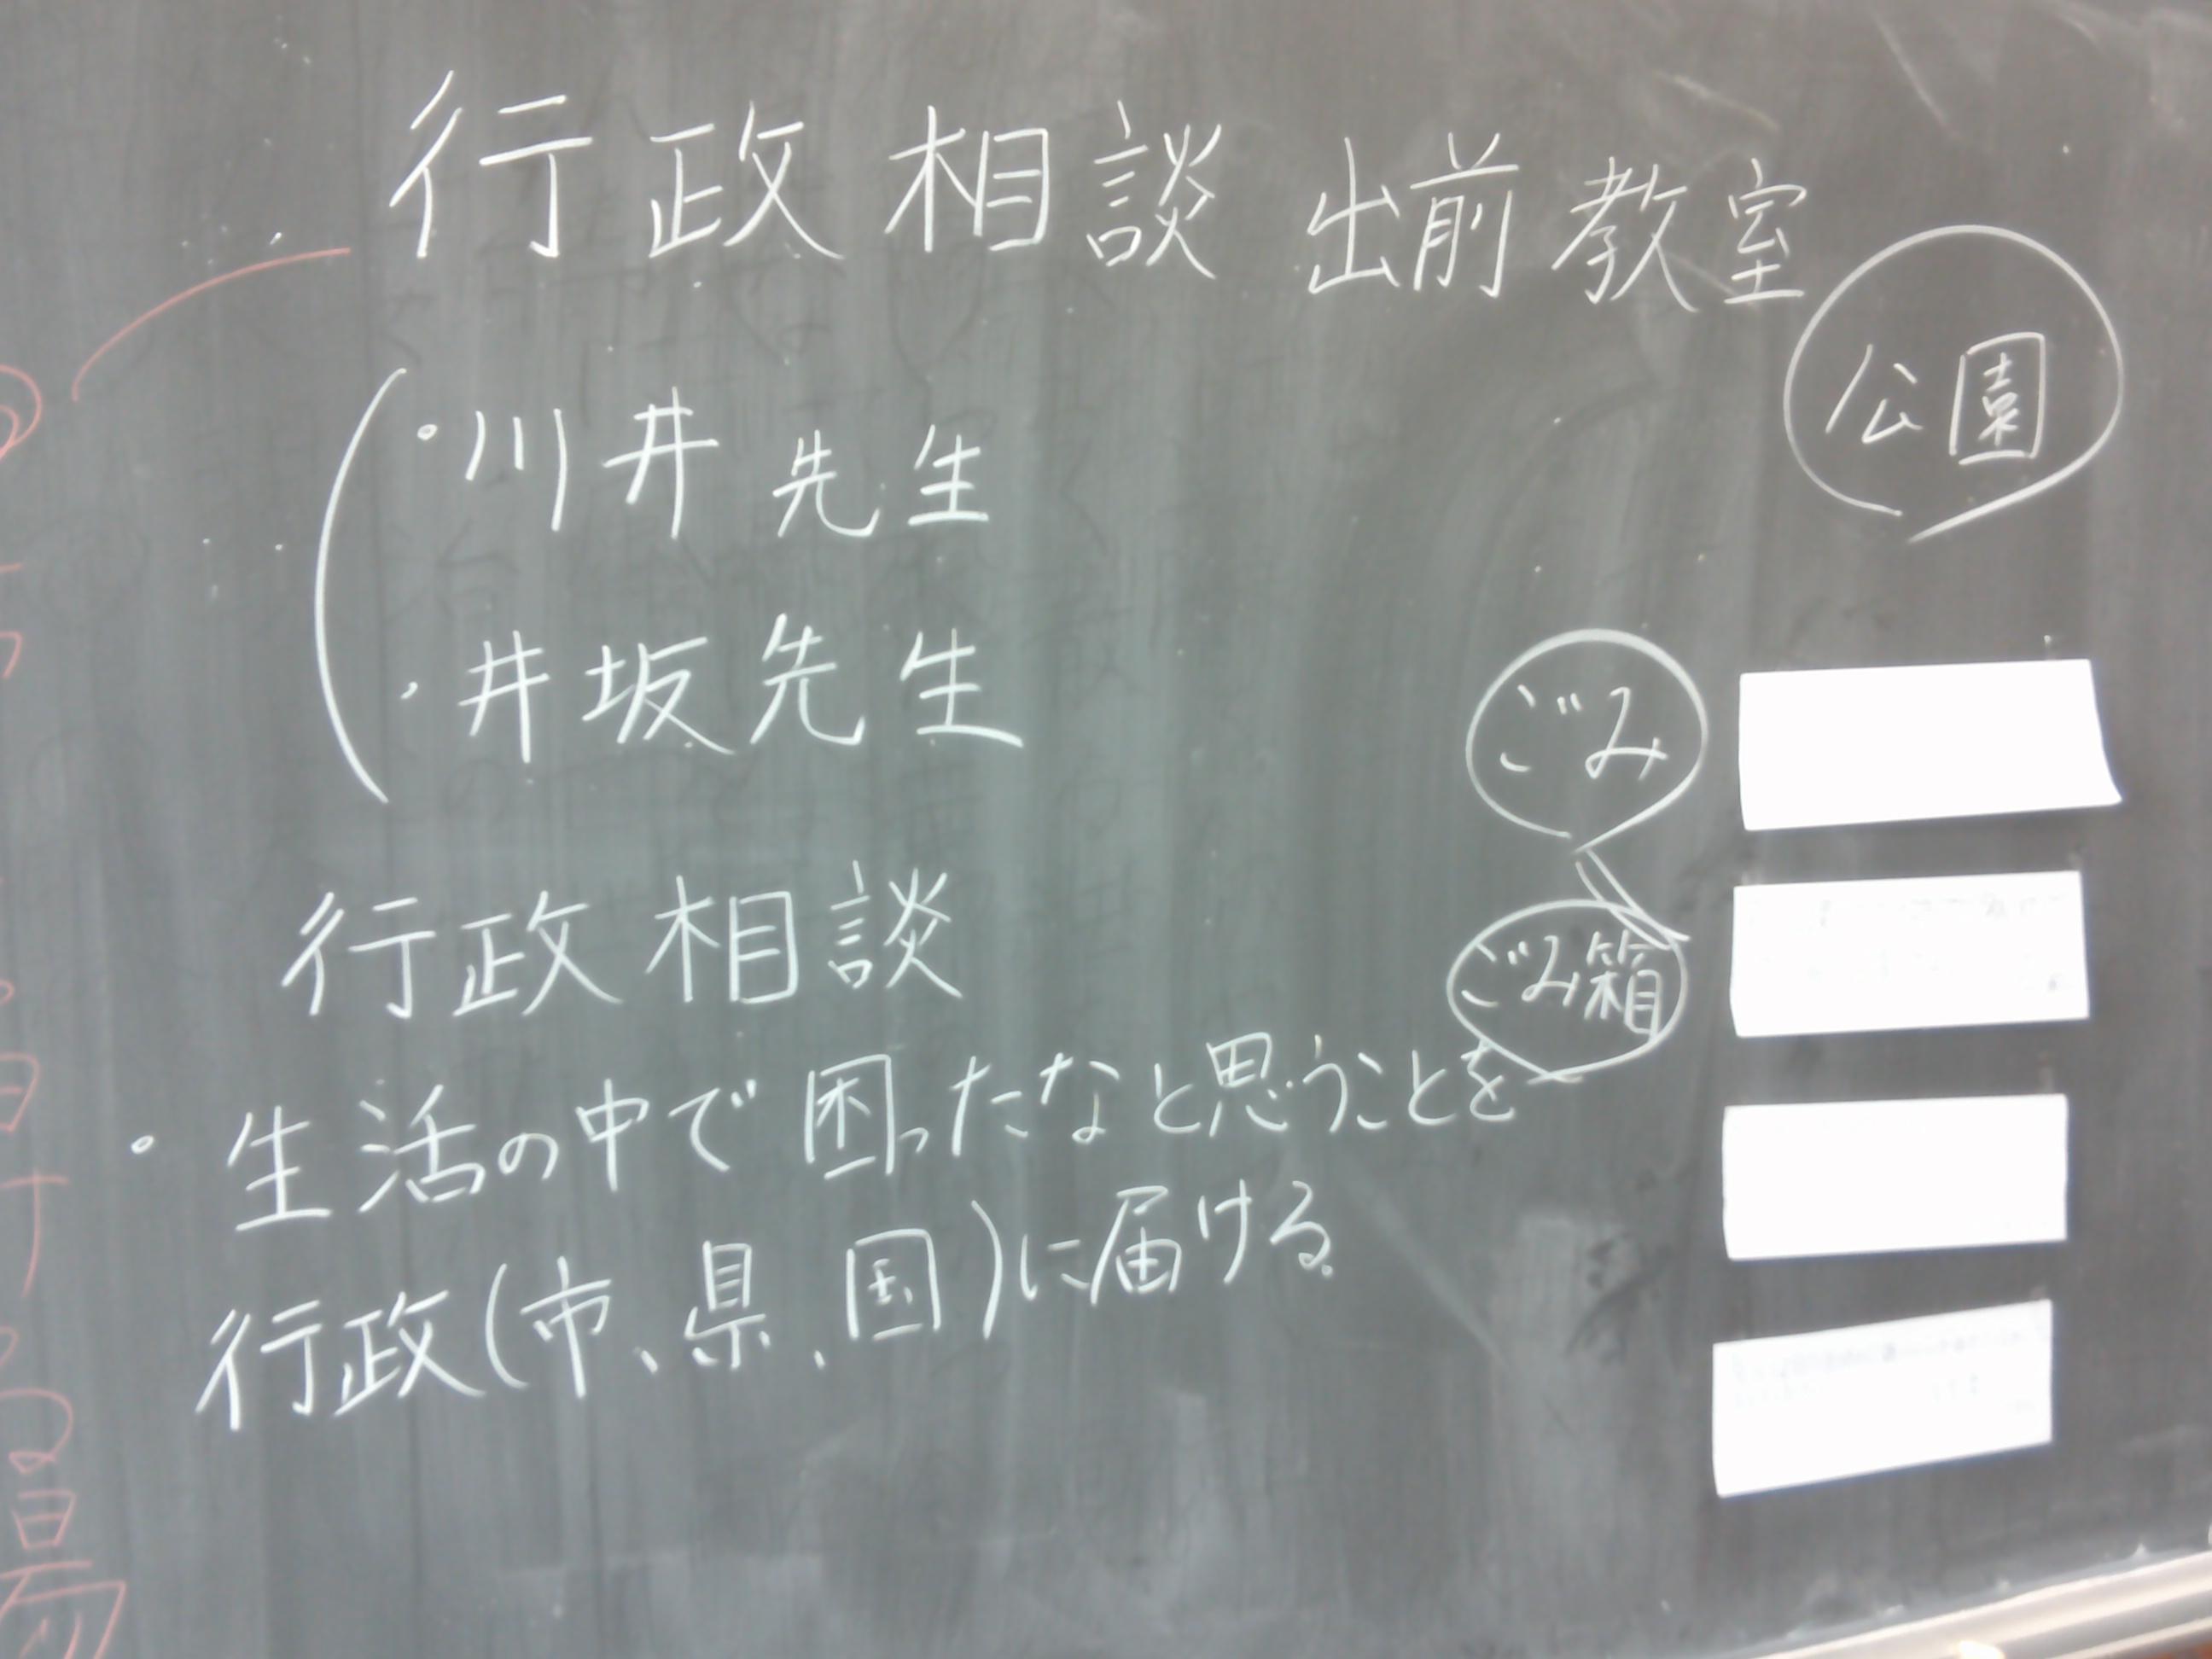 行政相談 出前教室
・川井先生
・井坂先生
公園
ごみ
ごみ箱
行政相談
・生活の中で困ったなと思うことを
行政(市、県、国)に届ける。